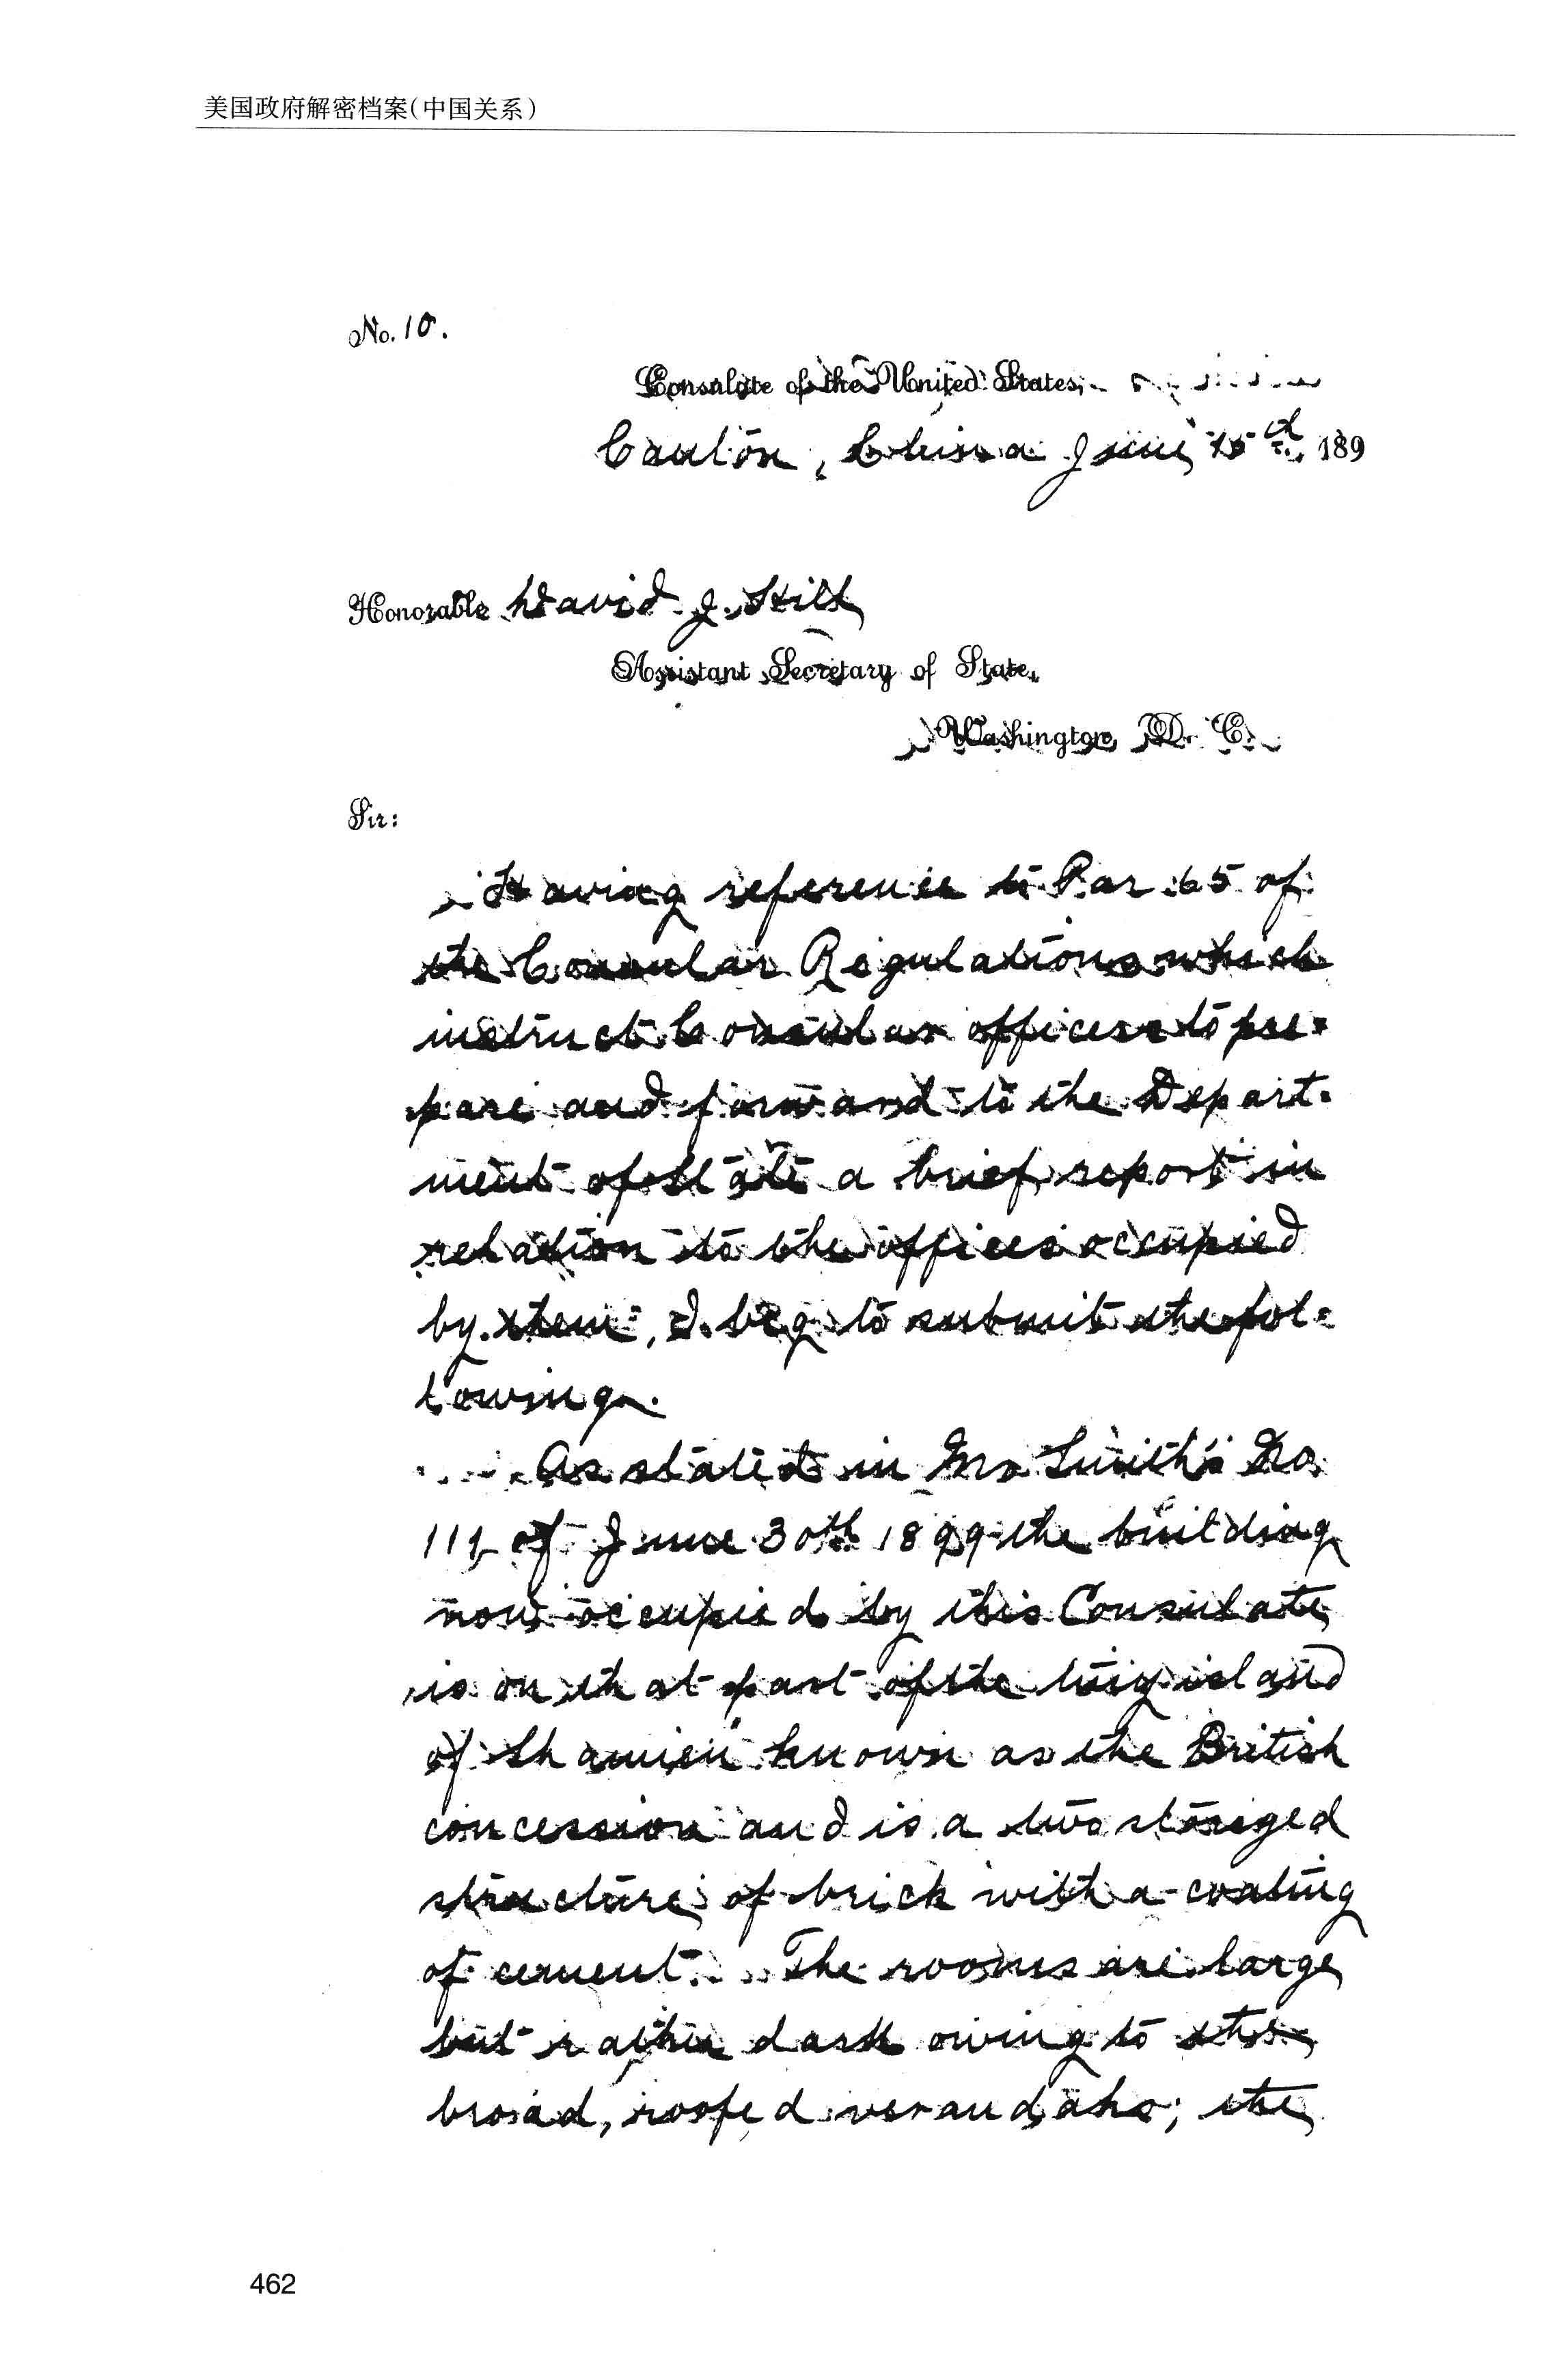 美国政府解密档案(中国关系)
No. 10.
Consulate of the United States,
Canton, China June 15th, 189
Honorable David J. Hill
Assistant Secretary of State,
Washington, D. C.
Sir:
Having reference to Par. 65 of
the Consular Regulations which
instruct Consular officers to pre=
pare and forward to the Depart-
ment of State a brief report in
relation to the offices occupied
by them, I beg to submit the fol=
lowing.
As stated in Mr Smith's No.
111 of June 30th 1899 the building
now occupied by this Consulate
is on that part of the island
of Shamien known as the British
concession and is a two storied
structure of brick with a coating
of cement. The rooms are large
but rather dark owing to the
broad, roofed verandahs; the
462